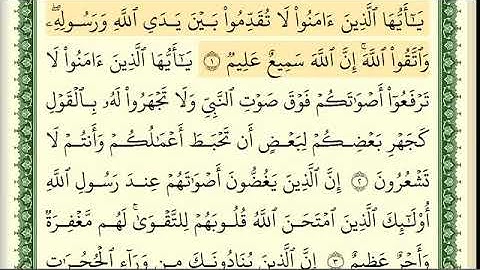 يَـٰٓأَيُّهَا ٱلَّذِينَ ءَامَنُوا۟ لَا تُقَدِّمُوا۟ بَيْنَ يَدَىِ ٱللَّهِ وَرَسُولِهِۦ ۖ
وَٱتَّقُوا۟ ٱللَّهَ ۚ إِنَّ ٱللَّهَ سَمِيعٌ عَلِيمٌ ١ يَـٰٓأَيُّهَا ٱلَّذِينَ ءَامَنُوا۟ لَا
تَرْفَعُوٓا۟ أَصْوَٰتَكُمْ فَوْقَ صَوْتِ ٱلنَّبِىِّ وَلَا تَجْهَرُوا۟ لَهُۥ بِٱلْقَوْلِ
كَجَهْرِ بَعْضِكُمْ لِبَعْضٍ أَن تَحْبَطَ أَعْمَـٰلُكُمْ وَأَنتُمْ لَا
تَشْعُرُونَ ٢ إِنَّ ٱلَّذِينَ يَغُضُّونَ أَصْوَٰتَهُمْ عِندَ رَسُولِ ٱللَّهِ
أُو۟لَـٰٓئِكَ ٱلَّذِينَ ٱمْتَحَنَ ٱللَّهُ قُلُوبَهُمْ لِلتَّقْوَىٰ ۚ لَهُم مَّغْفِرَةٌ
وَأَجْرٌ عَظِيمٌ ٣ إِنَّ ٱلَّذِينَ يُنَادُونَكَ مِن وَرَآءِ ٱلْحُجُرَٰتِ